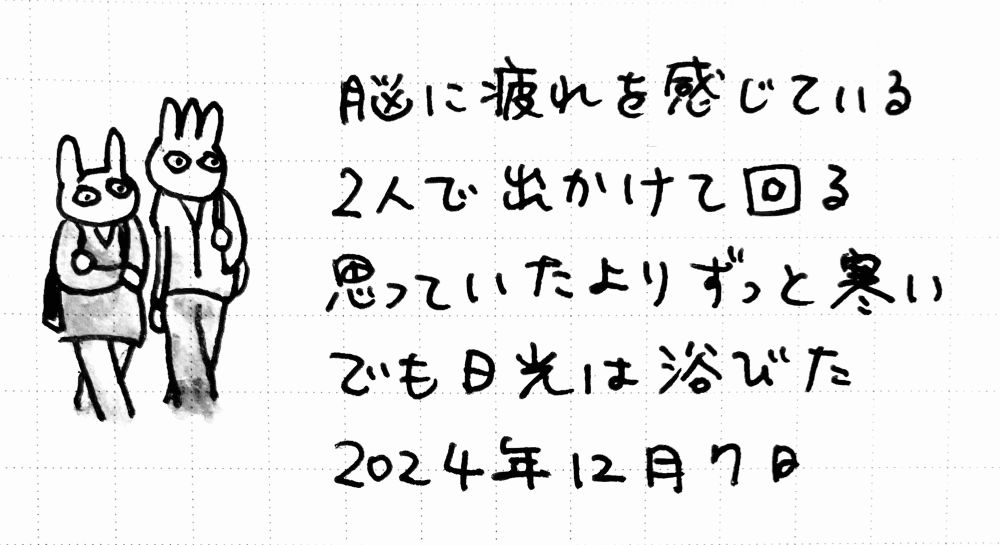 脳に疲れを感じている
2人で出かけて回る
思っていたよりずっと寒い
でも日光は浴びた
2024年12月7日